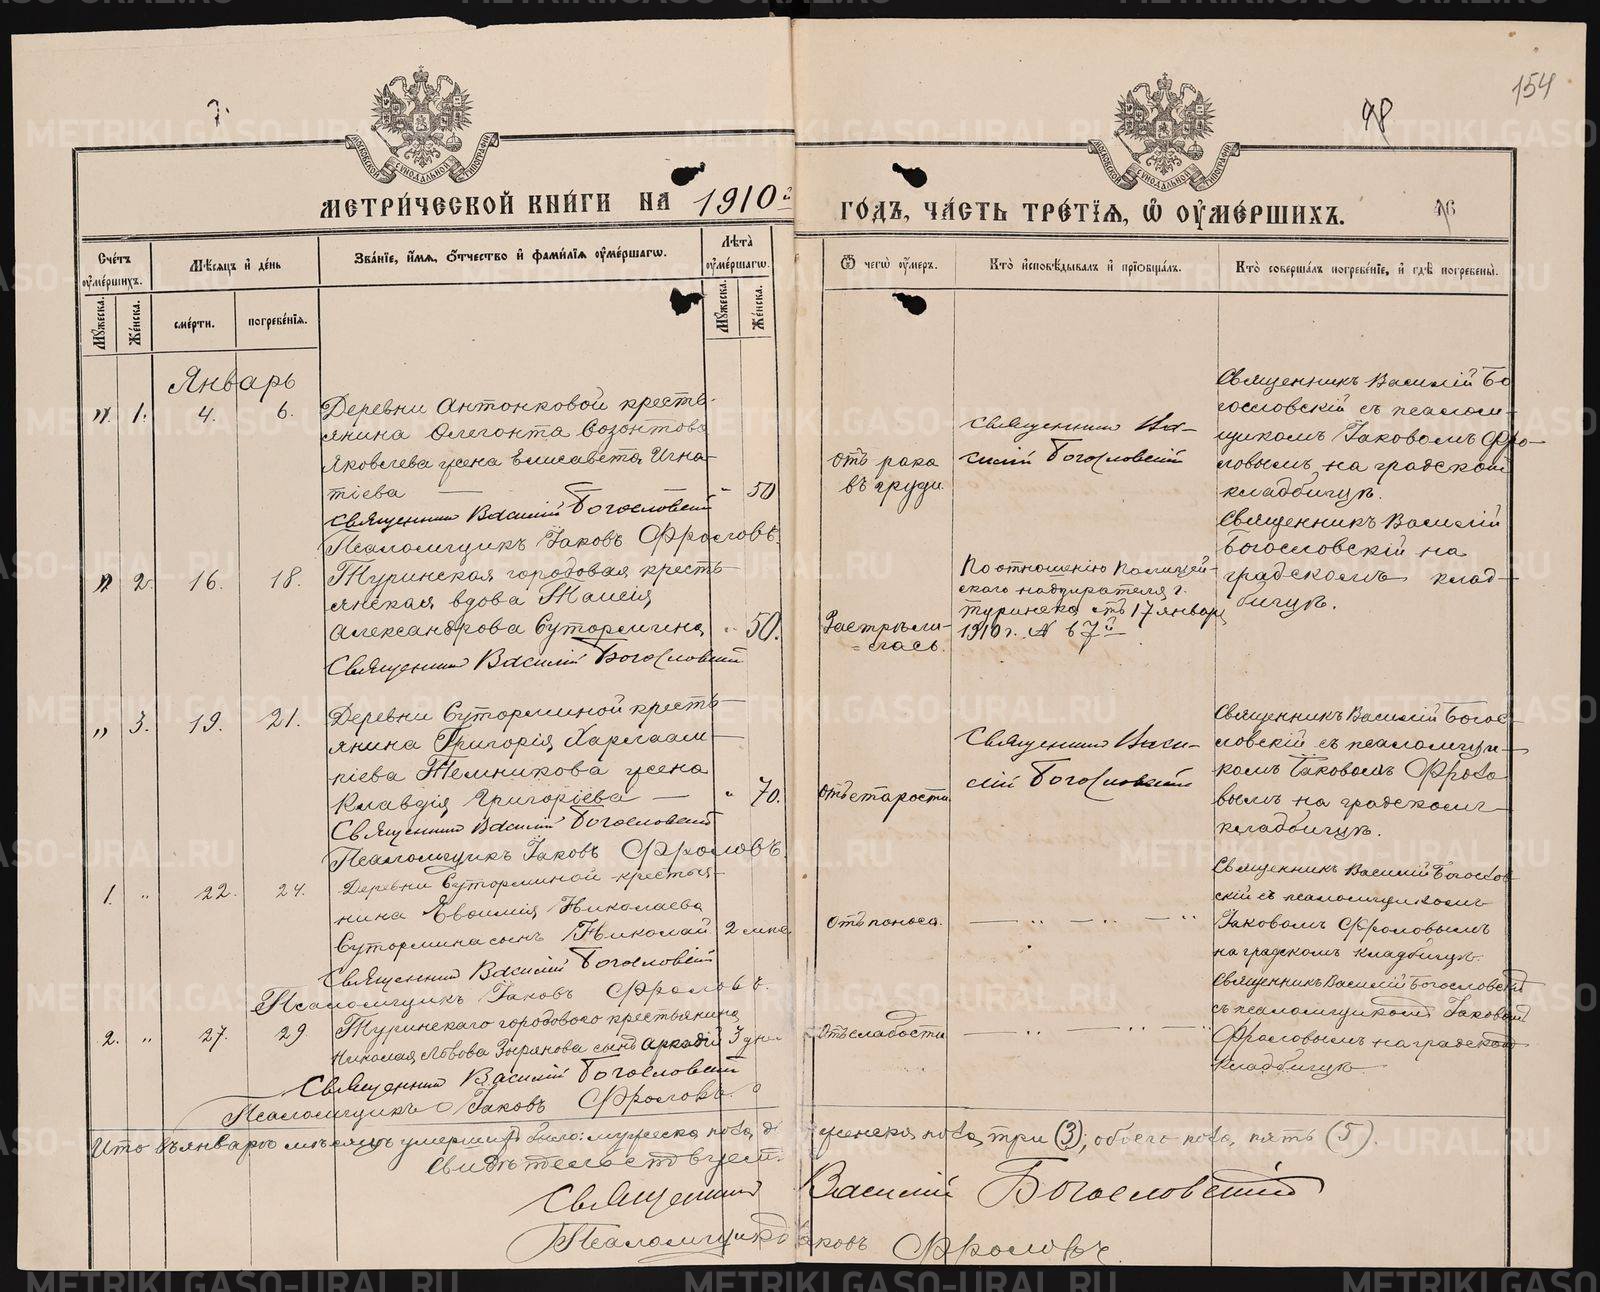 7.
98
154
МЕТРИ́ЧЕСКОЙ КНИ́ГИ НА 1910 г
ГО́ДЪ, ЧА́СТЬ ТРЕ́ТЇЯ, Ѽ ОУМЕ́РШИХЪ.
Сче́тъ оумершихъ.
Мѣ́сяцъ и де́нь
Зва́нїе, и́мя, о́тчество и фами́лїя оуме́ршагѡ.
Лѣ́та оуме́ршагѡ.
Ѿ чегѡ̀ оу́меръ.
Кто̀ исповѣ́дывалъ и прїѡбща́лъ.
Кто̀ соверша́лъ погребе́нїе, и гдѣ̀ погребены̀.
Му́жеска.
Же́нска.
сме́рти.
погребе́нїя.
Му́жеска.
Же́нска.
Январь
" 1. 4. 6.
Деревни Антонковой кресть-
янина Олегонта Созонтова
Яковлева жена Елисавета Игна-
тіева — " 50
Священник Василій Богословскій
Псаломщикъ Іаковъ Фроловъ.
отъ рака
въ груди.
Священник Ва-
силій Богословскій
Священникъ Василій Бо
гословскій съ псалом-
щикомъ Іаковомъ Фро-
ловымъ на градском
кладбищѣ.
" 2. 16. 18.
Туринская городовая кресть-
янская вдова Таисія
Александрова Сутормина " 50.
Священник Василій Богословскій
Застрѣли-
лась.
По отношенію Полицей-
скаго надзирателя г.
Туринска отъ 17 январ
1910 г. № 67й
Священникъ Василій
Богословскій на
градскомъ клад-
бищѣ.
" 3. 19. 21.
Деревни Суторминой кресть-
янина Григорія Харлам-
піева Темникова жена
Клавдія Григоріева — " 70.
Священник Василій Богословскій
Псаломщикъ Іаковъ Фроловъ.
Отъ старости
Священник Васи-
лій Богословскій
Священникъ Василій Богос-
ловскій съ псаломщи-
комъ Іаковомъ Фроло
вымъ на градском
кладбищѣ.
1. " 22. 24.
Деревни Суторминой крестья-
нина Евфимія Николаева
Сутормина сынъ Николай 2 мца
Священник Василій Богословскій
Псаломщикъ Іаковъ Фроловъ.
Отъ поноса.
— " — " — "
Священникъ Василій Богослов
скій съ псаломщикомъ
Іаковомъ Фроловымъ
на градском кладбищѣ.
2. " 27. 29
Туринскаго городового крестьянина
Николая Львова Зырянова сынъ Аркадій 3 дня
Священник Василій Богословскій
Псаломщикъ Іаковъ Фроловъ.
Отъ слабости
Священникъ Василій Богословскій
съ псаломщиком Іаковом
Фроловымъ на градском
кладбищѣ
Итого въ январѣ мѣсяцѣ умершихъ было: мужеска пола, женска пола, три (3); обоего пола, пять (5).
Свидѣтельствуем:
Священник Василій Богословскій
Псаломщикъ Іаковъ Фроловъ.
METRIKI.GASO-URAL.RU